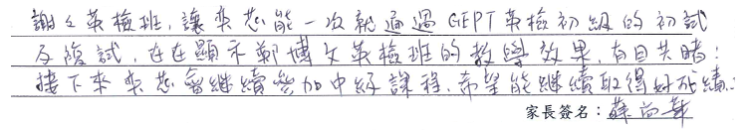 謝謝英檢班,讓奕芯能一次就通過GEPT英檢初級的初試
及複試,在在顯示鄭博文英檢班的教學效果,有目共睹!
接下來奕芯會繼續參加中級課程,希望能繼續取得好成績。
家長簽名:蘇